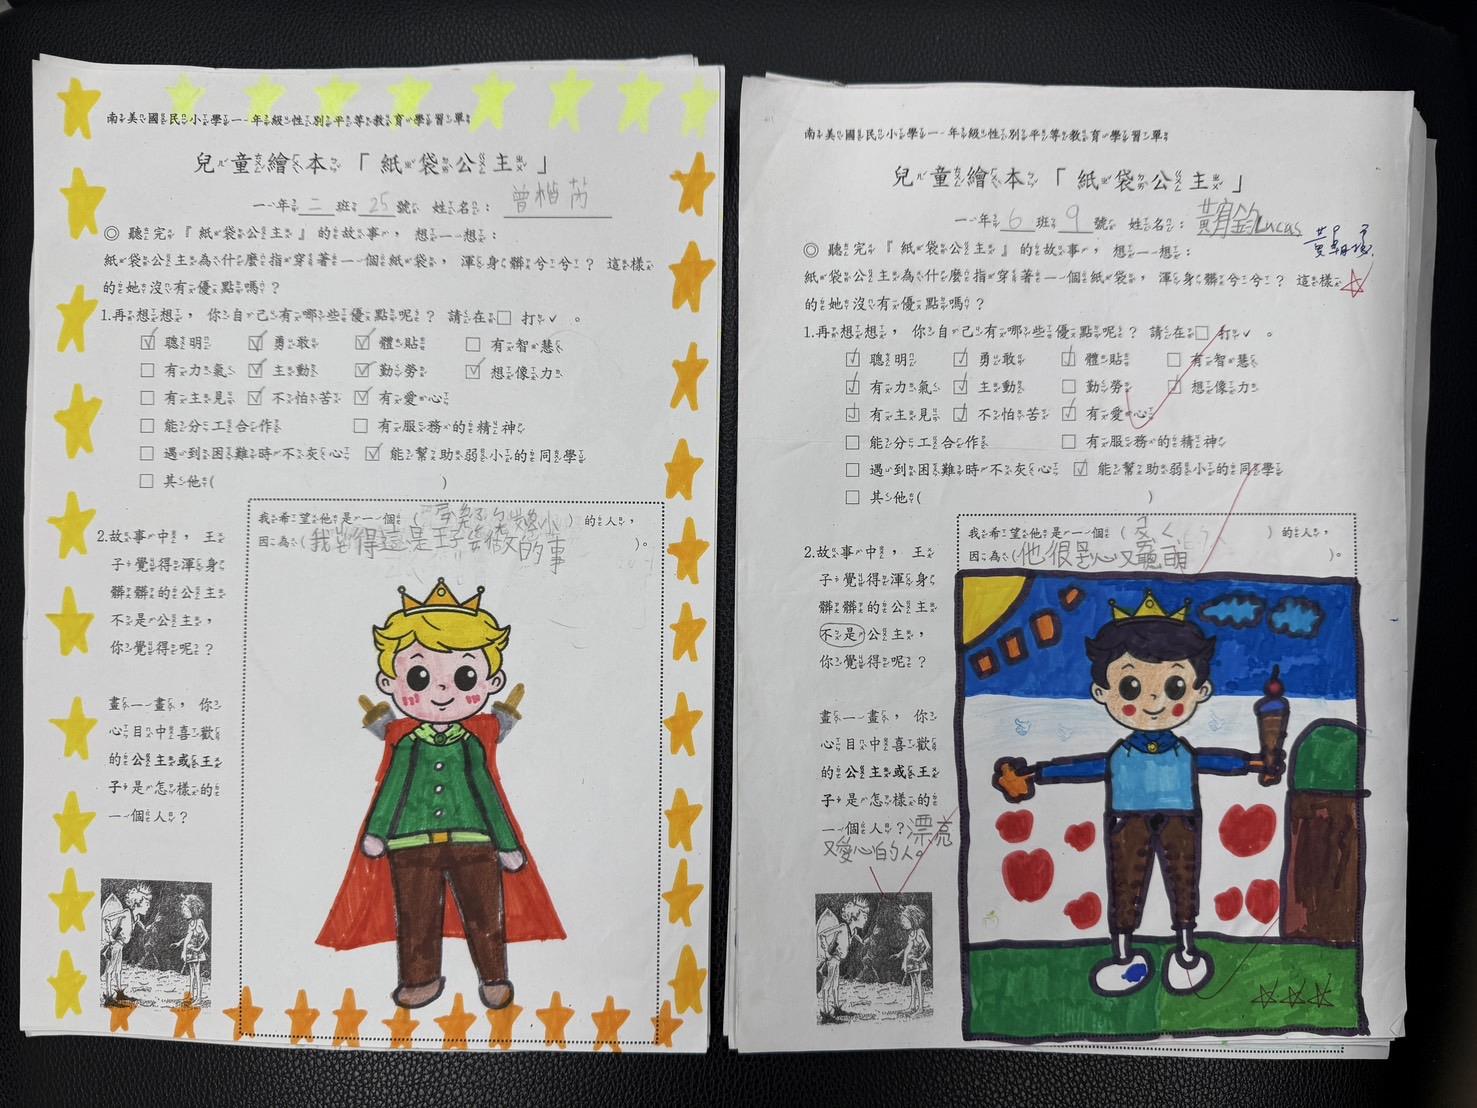 南美國民小學一年級性別平等教育學習單
兒童繪本「紙袋公主」
一年二班25號 姓名：曾楷芮
◎ 聽完『紙袋公主』的故事，想一想：
紙袋公主為什麼指穿著一個紙袋，渾身髒兮兮？這樣
的她沒有優點嗎？
1.再想想想，你自己有哪些優點呢？請在□打✓。
☑ 聰明 ☑ 勇敢 ☑ 體貼 □ 有智慧
□ 有力氣 ☑ 主動 ☑ 勤勞 ☑ 想像力
□ 有主見 ☑ 不怕苦 ☑ 有愛心
□ 能分工合作 □ 有服務的精神
□ 遇到困難時不灰心 ☑ 能幫助弱小的同學
□ 其他( )
我希望他是一個( )的人，
因為(我覺得這是王子要做的事)。
2.故事中，王
子覺得渾身
髒髒的公主
不是公主，
你覺得呢？
畫一畫，你
心目中喜歡
的公主或王
子是怎樣的
一個人？
南美國民小學一年級性別平等教育學習單
兒童繪本「紙袋公主」
一年6班9號 姓名：黃宥鈞Lucas
◎ 聽完『紙袋公主』的故事，想一想：
紙袋公主為什麼指穿著一個紙袋，渾身髒兮兮？這樣
的她沒有優點嗎？
1.再想想想，你自己有哪些優點呢？請在□打✓。
☑ 聰明 ☑ 勇敢 ☑ 體貼 □ 有智慧
☑ 有力氣 ☑ 主動 □ 勤勞 ☑ 想像力
☑ 有主見 ☑ 不怕苦 ☑ 有愛心
□ 能分工合作 □ 有服務的精神
□ 遇到困難時不灰心 ☑ 能幫助弱小的同學
□ 其他( )
我希望他是一個( )的人，
因為(他很愛心又聰明)。
2.故事中，王
子覺得渾身
髒髒的公主
不是公主，
你覺得呢？
畫一畫，你
心目中喜歡
的公主或王
子是怎樣的
一個人？漂亮
又愛心的人。